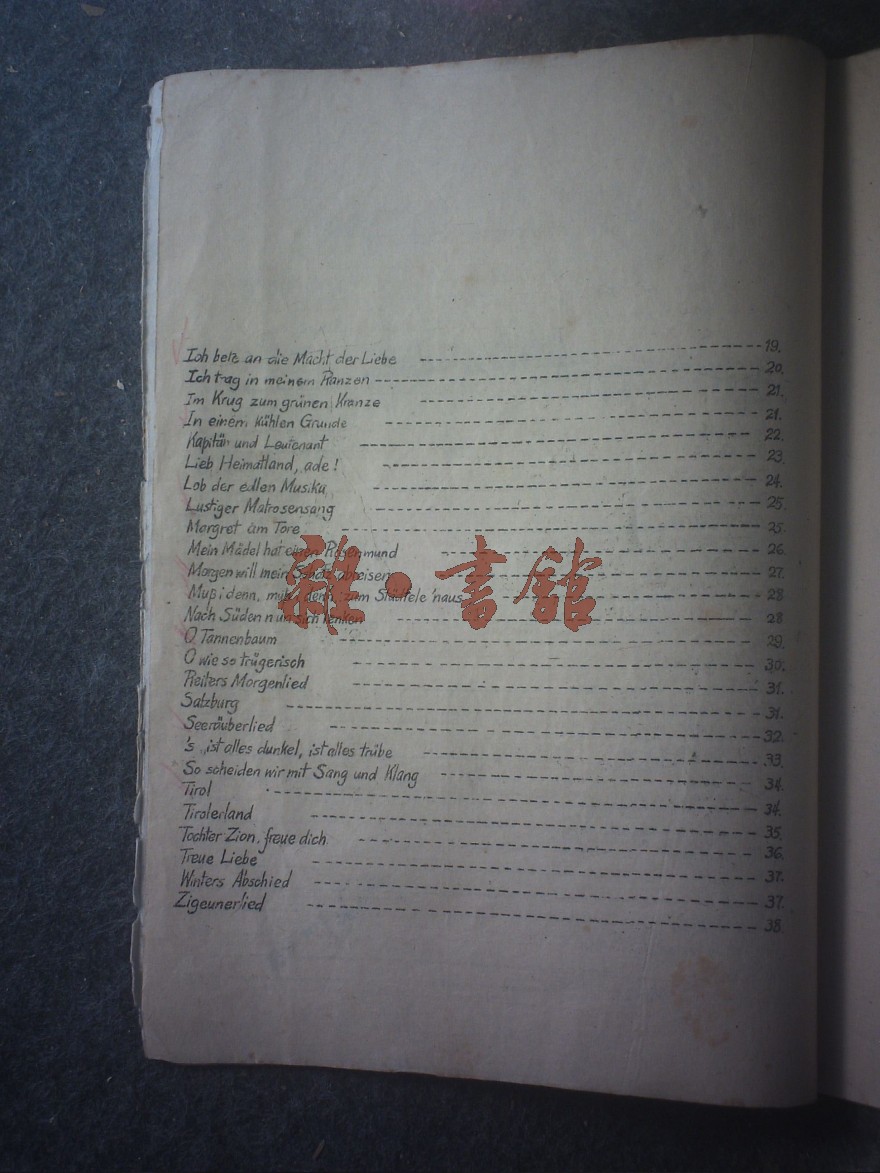 Ich bete an die Macht der Liebe 19.
Ich trag in meinem Ranzen 20.
Im Krug zum grünen Kranze 21.
In einem kühlen Grunde 21.
Kapitän und Leutenant 22.
Lieb Heimatland, ade! 23.
Lob der edlen Musika 24.
Lustiger Matrosensang 25.
Margret am Tore 25.
Mein Mädel hat einen Rosenmund 26.
Morgen will mein Schatz abreisen 27.
Muß i denn, muß i denn, zum Städtele 'naus 28
Nach Süden nun sich lenken 28
O Tannenbaum 29.
O wie so trügerisch 30.
Reiters Morgenlied 31.
Salzburg 31.
Seeräuberlied 32.
's ist alles dunkel, ist alles trübe 33.
So scheiden wir mit Sang und Klang 34.
Tirol 34.
Tirolerland 35.
Tochter Zion, freue dich 36.
Treue Liebe 37.
Winters Abschied 37.
Zigeunerlied 38.
雜·書館